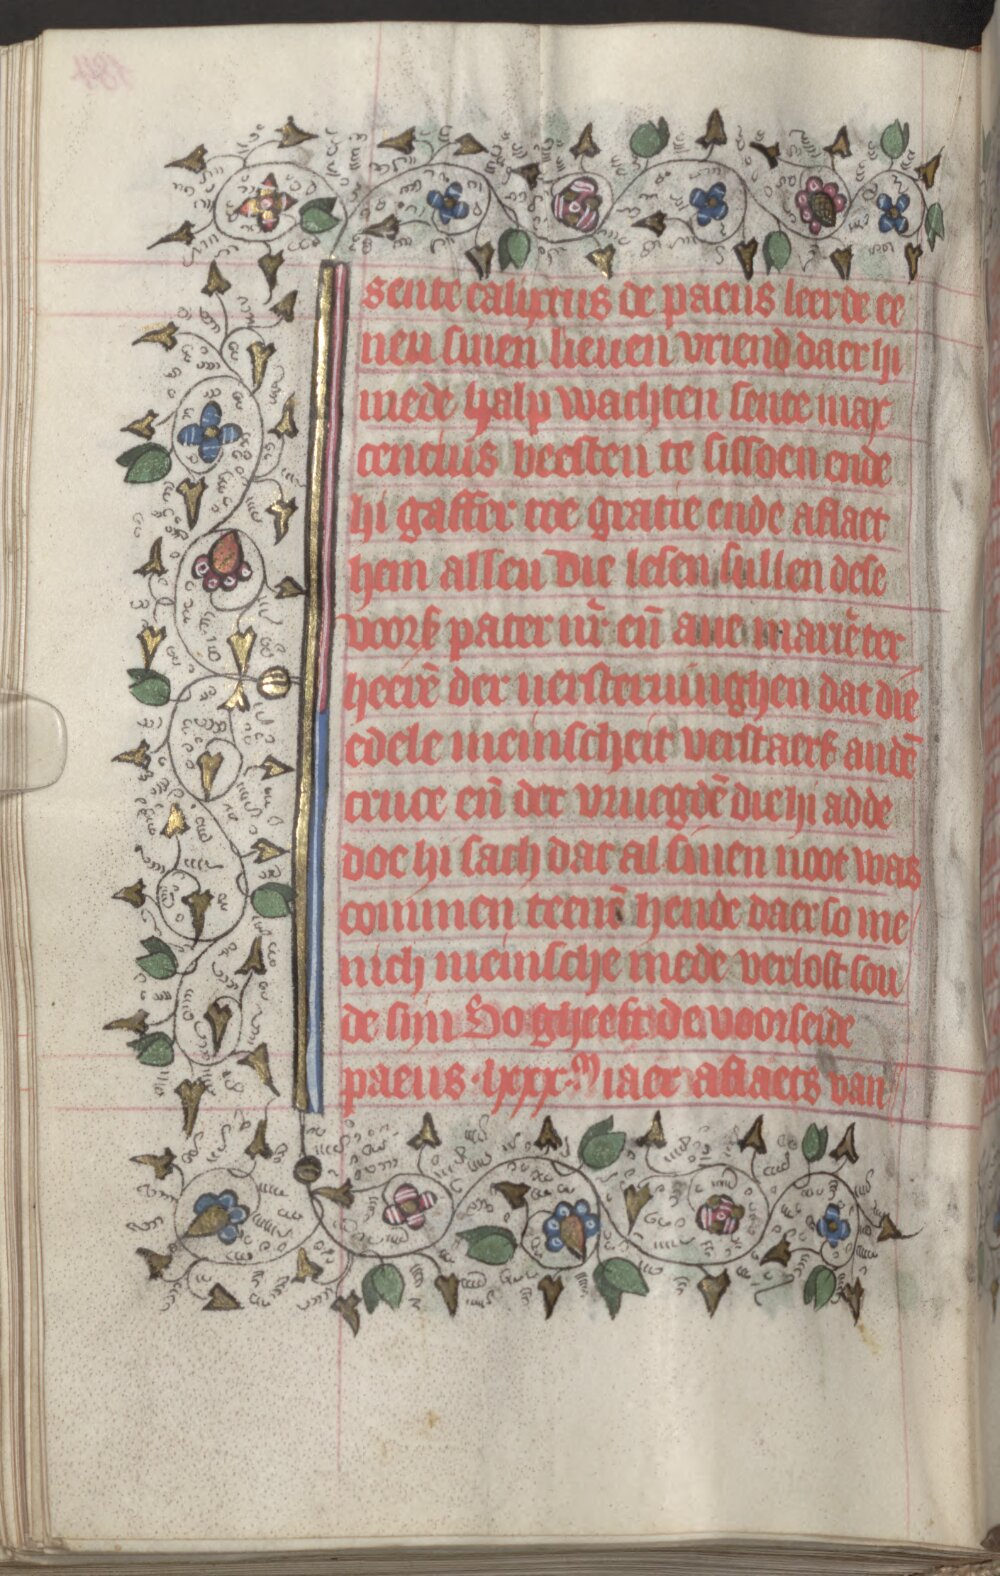 sente calixtus de paeus leerde ee
nen sinen lieuen vriend daer hi
mede halp wachten sente max
cencius veesten te sissoen ende
hi gaffer toe gratie ende aflaet
hem allen die lesen sullen dese
voors̄ pater nr̄ en̄ aue mariē ter
heerē der versteruinghen dat die
edele meinscheit verstaerf andē
cruce en̄ der vruegdē die hi adde
doe hi sach dat al sinen noot was
commen teenē hende daer so me
nich meinsche mede verlost sou
de sijn So gheeft de voorseide
paeus .lxxx.M iaer aflaets van